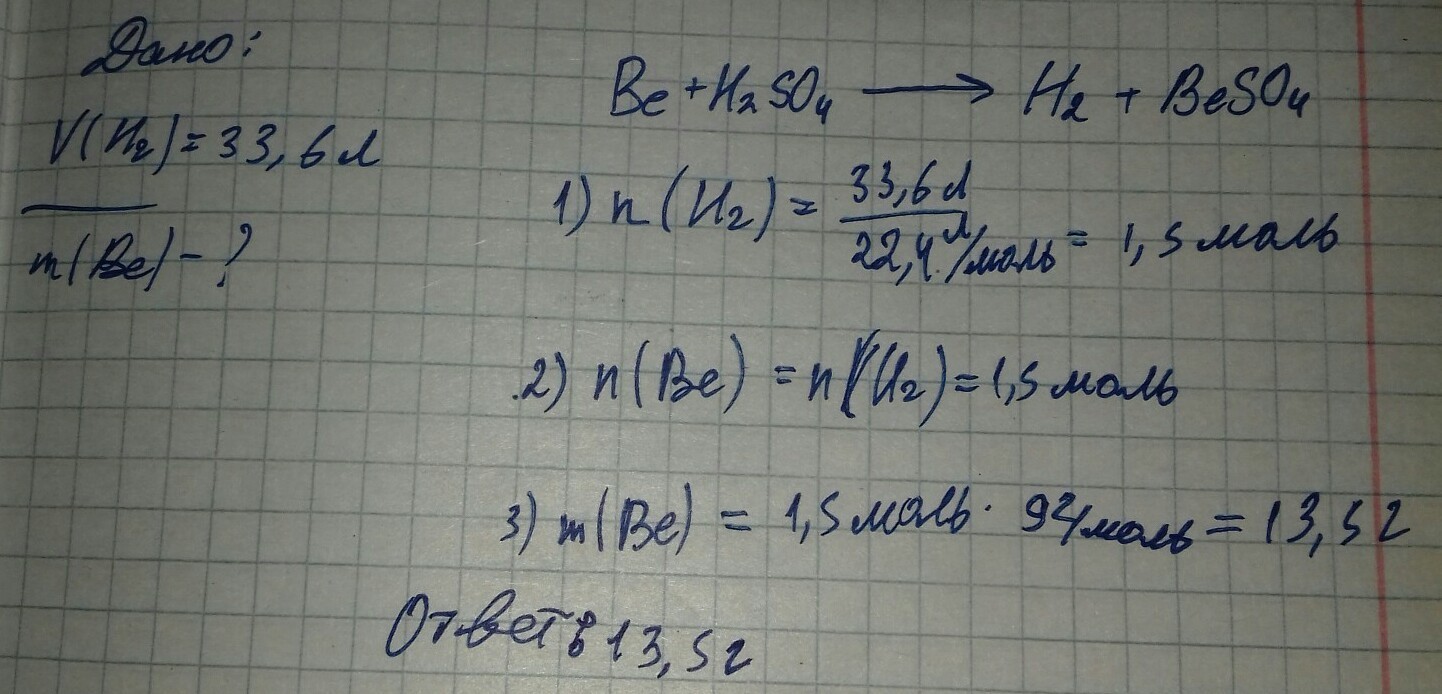 Дано:
V(H₂)=33,6л
m(Be)-?
Be+H₂SO₄ ⟶ H₂ + BeSO₄
1) n(H₂) = 33,6л / 22,4 л/моль = 1,5 моль
2) n(Be) = n(H₂)=1,5 моль
3) m(Be) = 1,5 моль · 9г/моль = 13,5 г
Ответ: 13,5 г